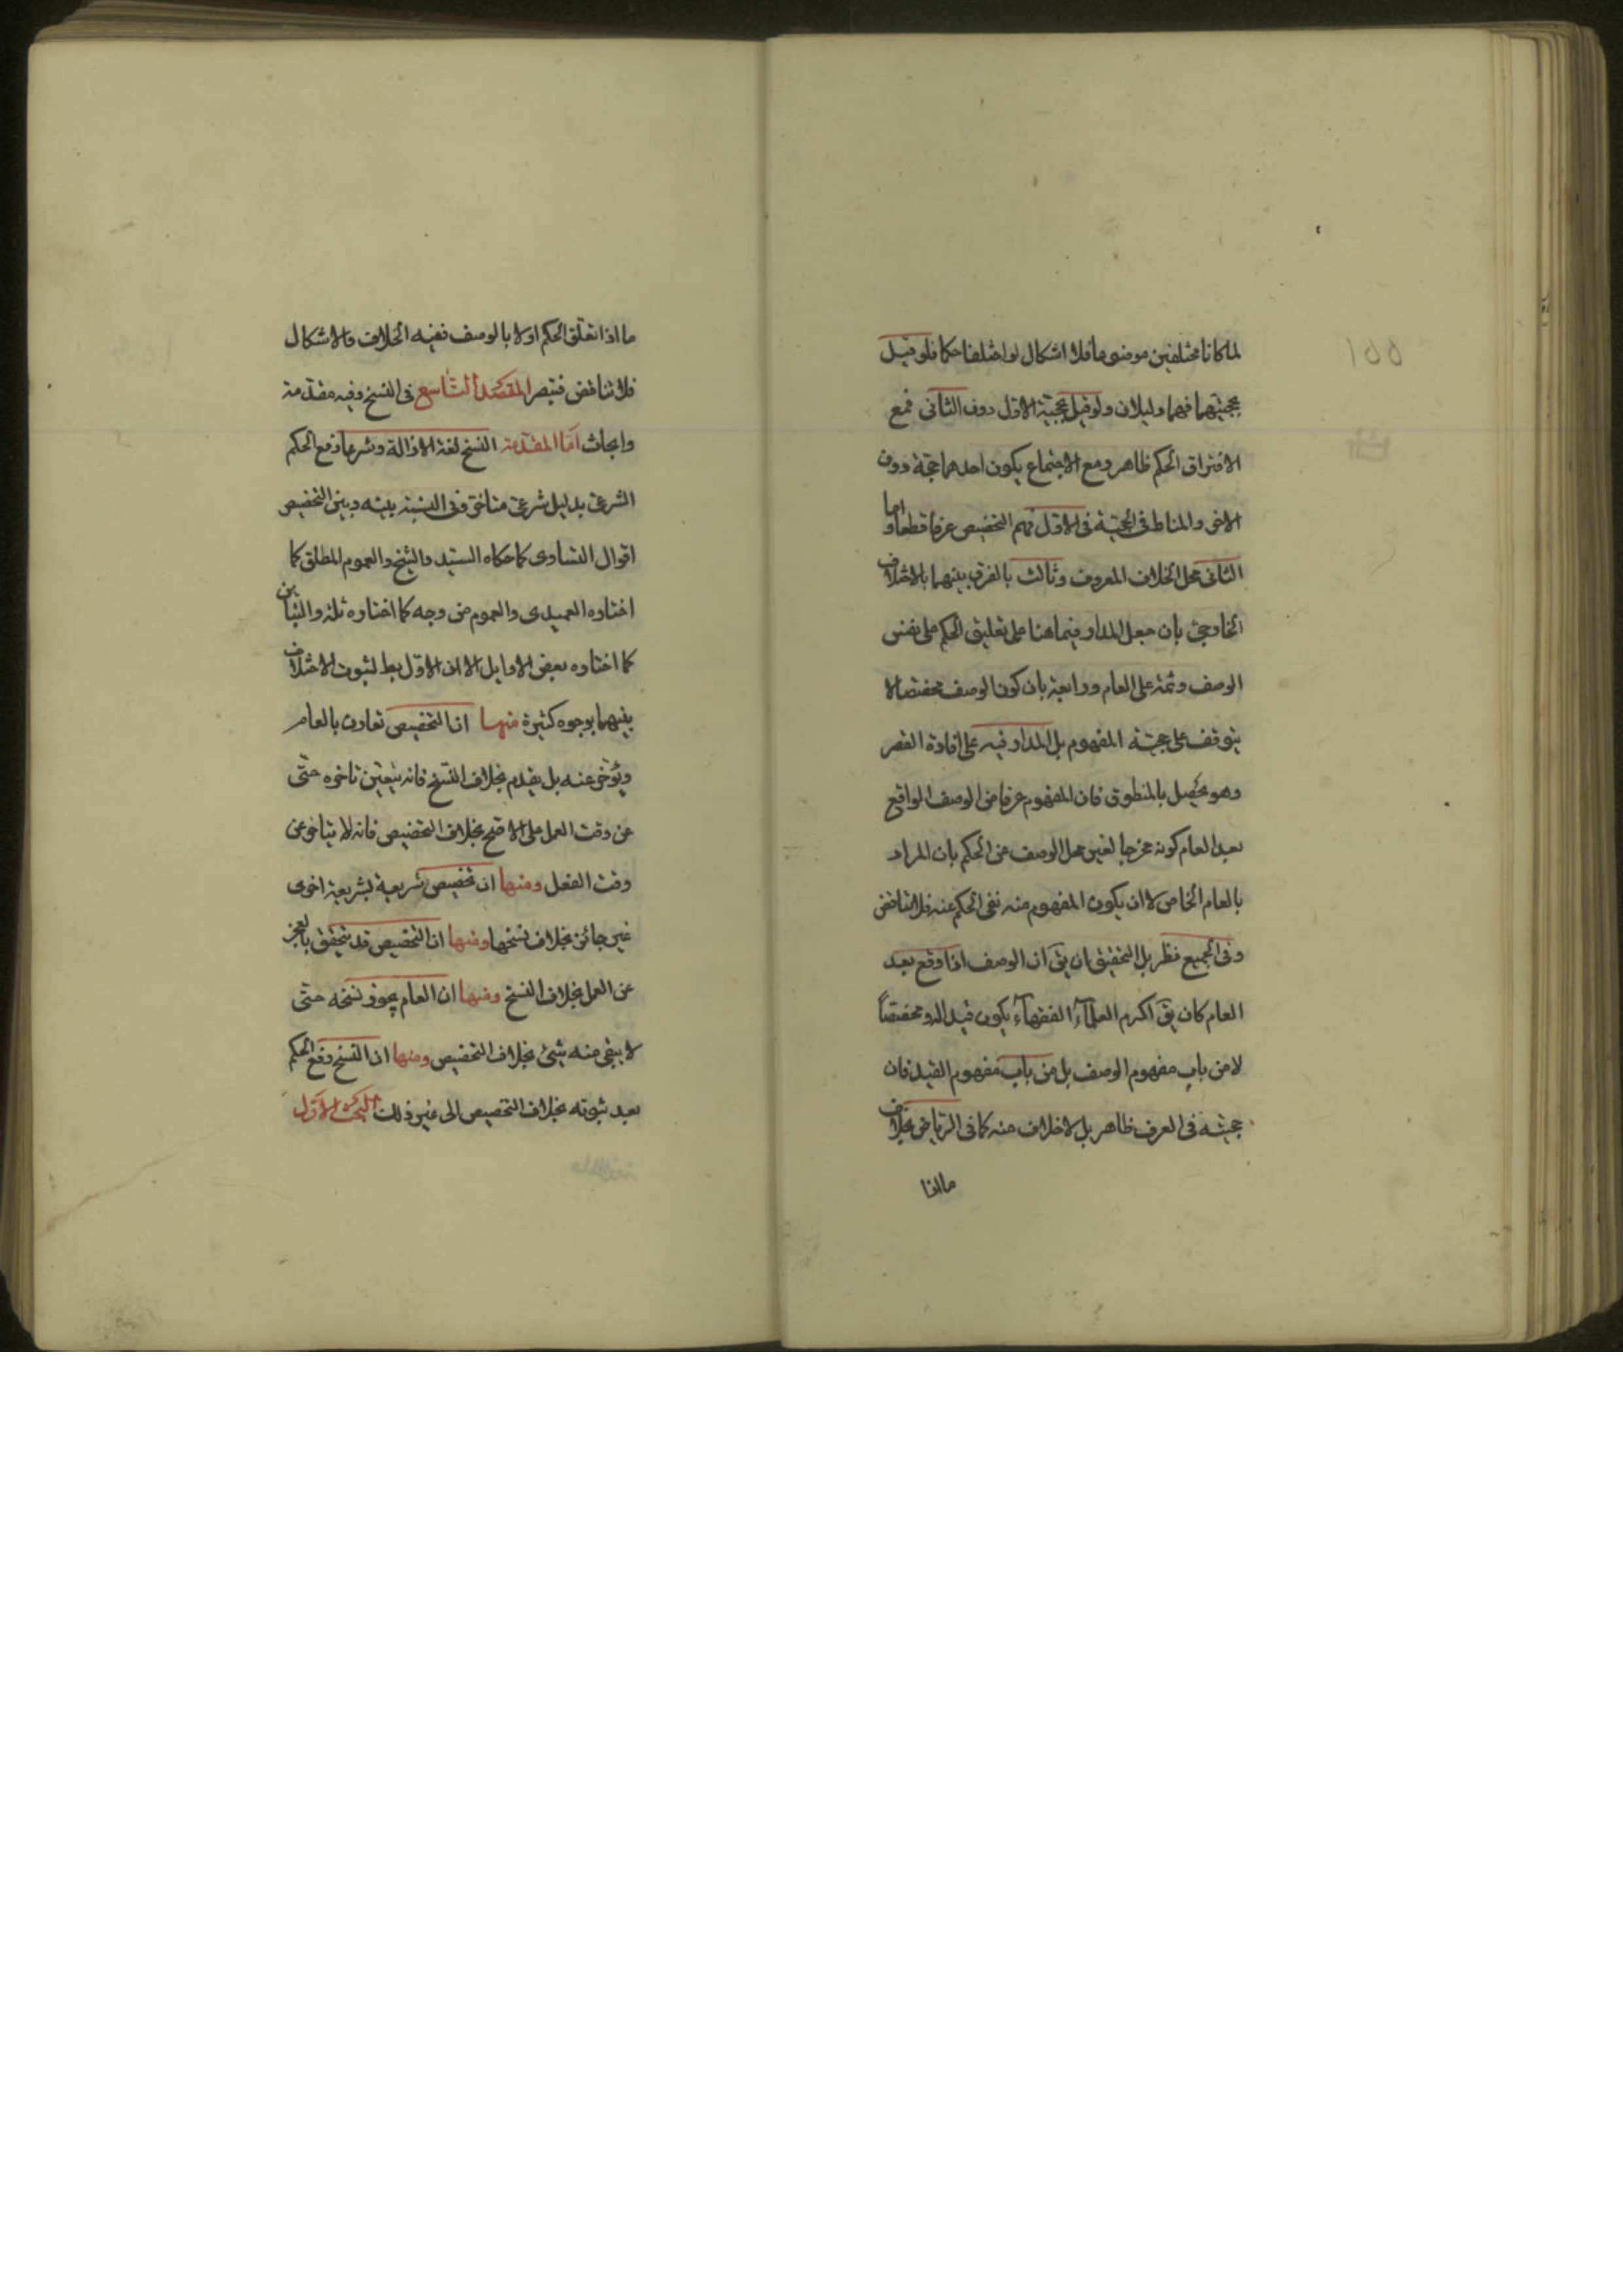 لما كانا مختلفين موضوعا فلا اشكال لو اختلفا حكما فلو قيل
بحجيتهما فهما دليلان ولو قيل بحجية الاول دون الثانى فمع
الافتراق الحكم ظاهر ومع الاجتماع يكون احدهما حجة دون
الاخر والمناط فى الحجية فى الاول فهم التخصيص عرفا قطعا واما
الثانى محل الخلاف المعروف وثالث بالفرق بينهما بالاختلاف
الخارجى بان جعل المدار فيما هنا على تعليق الحكم على نفس
الوصف وثمة على العام ورابعة بان كون الوصف مخصصا لا
يتوقف على حجية المفهوم بل المدار فيه على افادة القصر
وهو يحصل بالمنطوق فان المفهوم عرفا من الوصف الواقع
بعد العام كونه مخرجا لغير محل الوصف عن الحكم بان المراد
بالعام الخاص لا ان يكون المفهوم منه نفى الحكم عنه فلا تناقض
وفى الجميع نظر بل التحقيق ان يق ان الوصف اذا وقع بعد
العام كان يق اكرم العلمآء الفقهآء يكون قيدا له ومخصصاً
لا من باب مفهوم الوصف بل من باب مفهوم القيد فان
حجيته فى العرف ظاهر بل لا خلاف منه كما فى الرياض بخلاف
ما اذا
١٥٥
ما اذا تعلق الحكم اولا بالوصف ففيه الخلاف والاشكال
فلا تناقض فتبصر المقصد التاسع فى النسخ وفيه مقدمة
وابحاث اما المقدمة النسخ لغة الازالة وشرعا رفع الحكم
الشرعى بدليل شرعى متاخر وفى النسبة بينه وبين التخصيص
اقوال التساوى كما حكاه السيد والشيخ والعموم المطلق كما
اختاره العميدى والعموم من وجه كما اختاره ثلة والتباين
كما اختاره بعض الاوايل الا ان الاول بط لثبوت الاختلاف
بينهما بوجوه كثيرة منها ان التخصيص تعارن بالعام
ويؤخر عنه بل يقدم بخلاف النسخ فانه يتعين تاخره حتى
عن وقت العمل على الاصح بخلاف التخصيص فانه لا يتاخر عن
وقت الفعل ومنها ان تخصيص شريعة بشريعة اخرى
غير جائز بخلاف نسخها ومنها ان التخصيص قد يتحقق بالعجز
عن العمل بخلاف النسخ ومنها ان العام يجوز نسخه حتى
لا يبقى منه شيئ بخلاف التخصيص ومنها ان النسخ رفع الحكم
بعد ثبوته بخلاف التخصيص الى غير ذلك البحث الاول